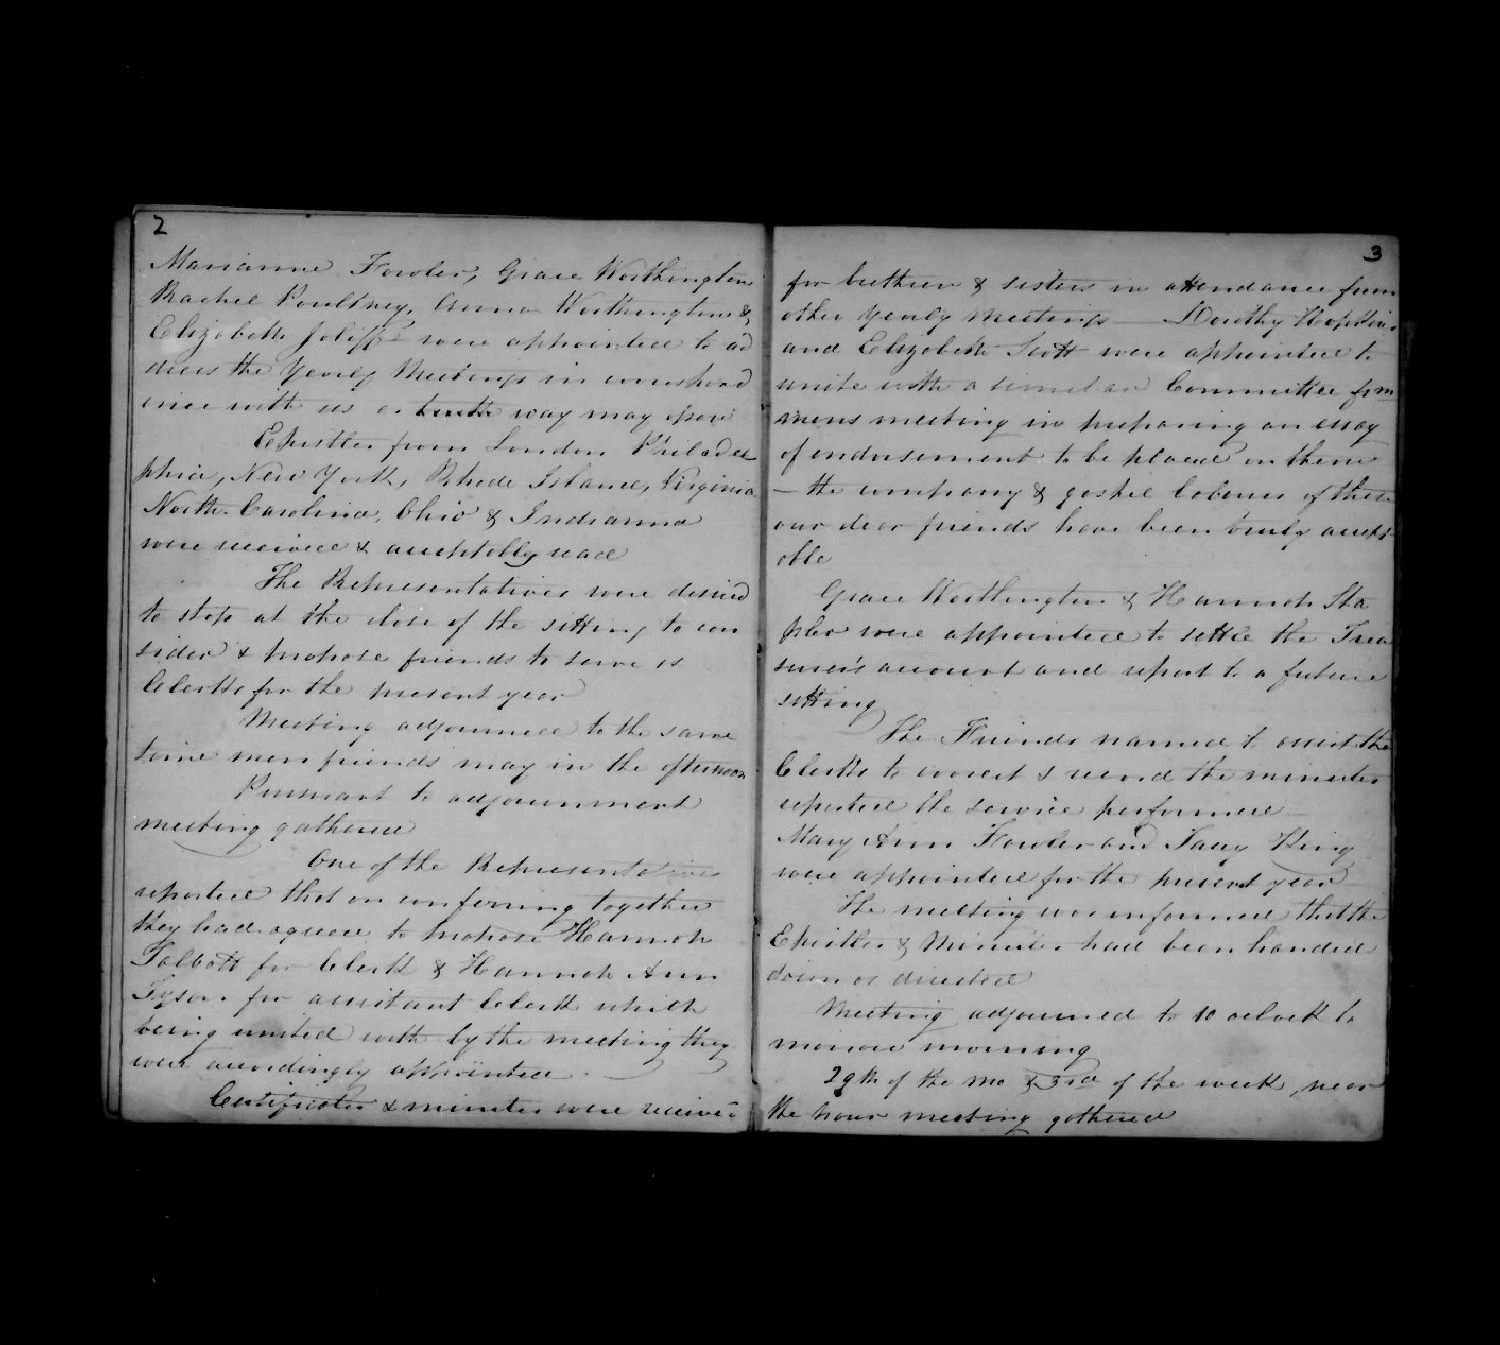 2
Marianne Fowler, Grace Worthington
Rachel Poultney, Anna Worthington &
Elizabeth Joliffe were appointed to ad
dress the Yearly Meetings in correspond
ence with us as truth way may open
Epistles from London Philadel
phia, New York, Rhode Island, Virginia
North Carolina, Ohio & Indianna
were received & acceptably read
The Representatives were desired
to stop at the close of the sitting to con
sider & propose friends to serve as
Clerks for the present year
Meeting adjourned to the same
time men friends may in the afternoon
Pursuant to adjournment
meeting gathered
One of the Representatives
reported that on conferring together
they had agreed to propose Hannah
Talbott for Clerk & Hannah Ann
Tyson for assistant Clerk which
being united with by the meeting they
were accordingly appointed
Certificates & minutes were received
3
for brethren & sisters in attendance from
other Yearly Meetings — Dorothy Hopkins
and Elizabeth Scott were appointed to
unite with a similar Committee from
mens meeting in preparing an essay
of endorsement to be placed on them
— the company & gospel labours of these
our dear friends have been truly accept
able
Grace Worthington & Hannah Sta
pler were appointed to settle the Trea
surer's account and report to a future
sitting
The Friends named to assist the
Clerks to correct & record the minutes
reported the service performed —
Mary Ann Fowler and Tacey King
were appointed for the present year
The meeting was informed that the
Epistles & Minutes had been handed
down as directed
Meeting adjourned to 10 oclock to
morrow morning
29th of the mo & 3rd of the week, near
the hour meeting gathered